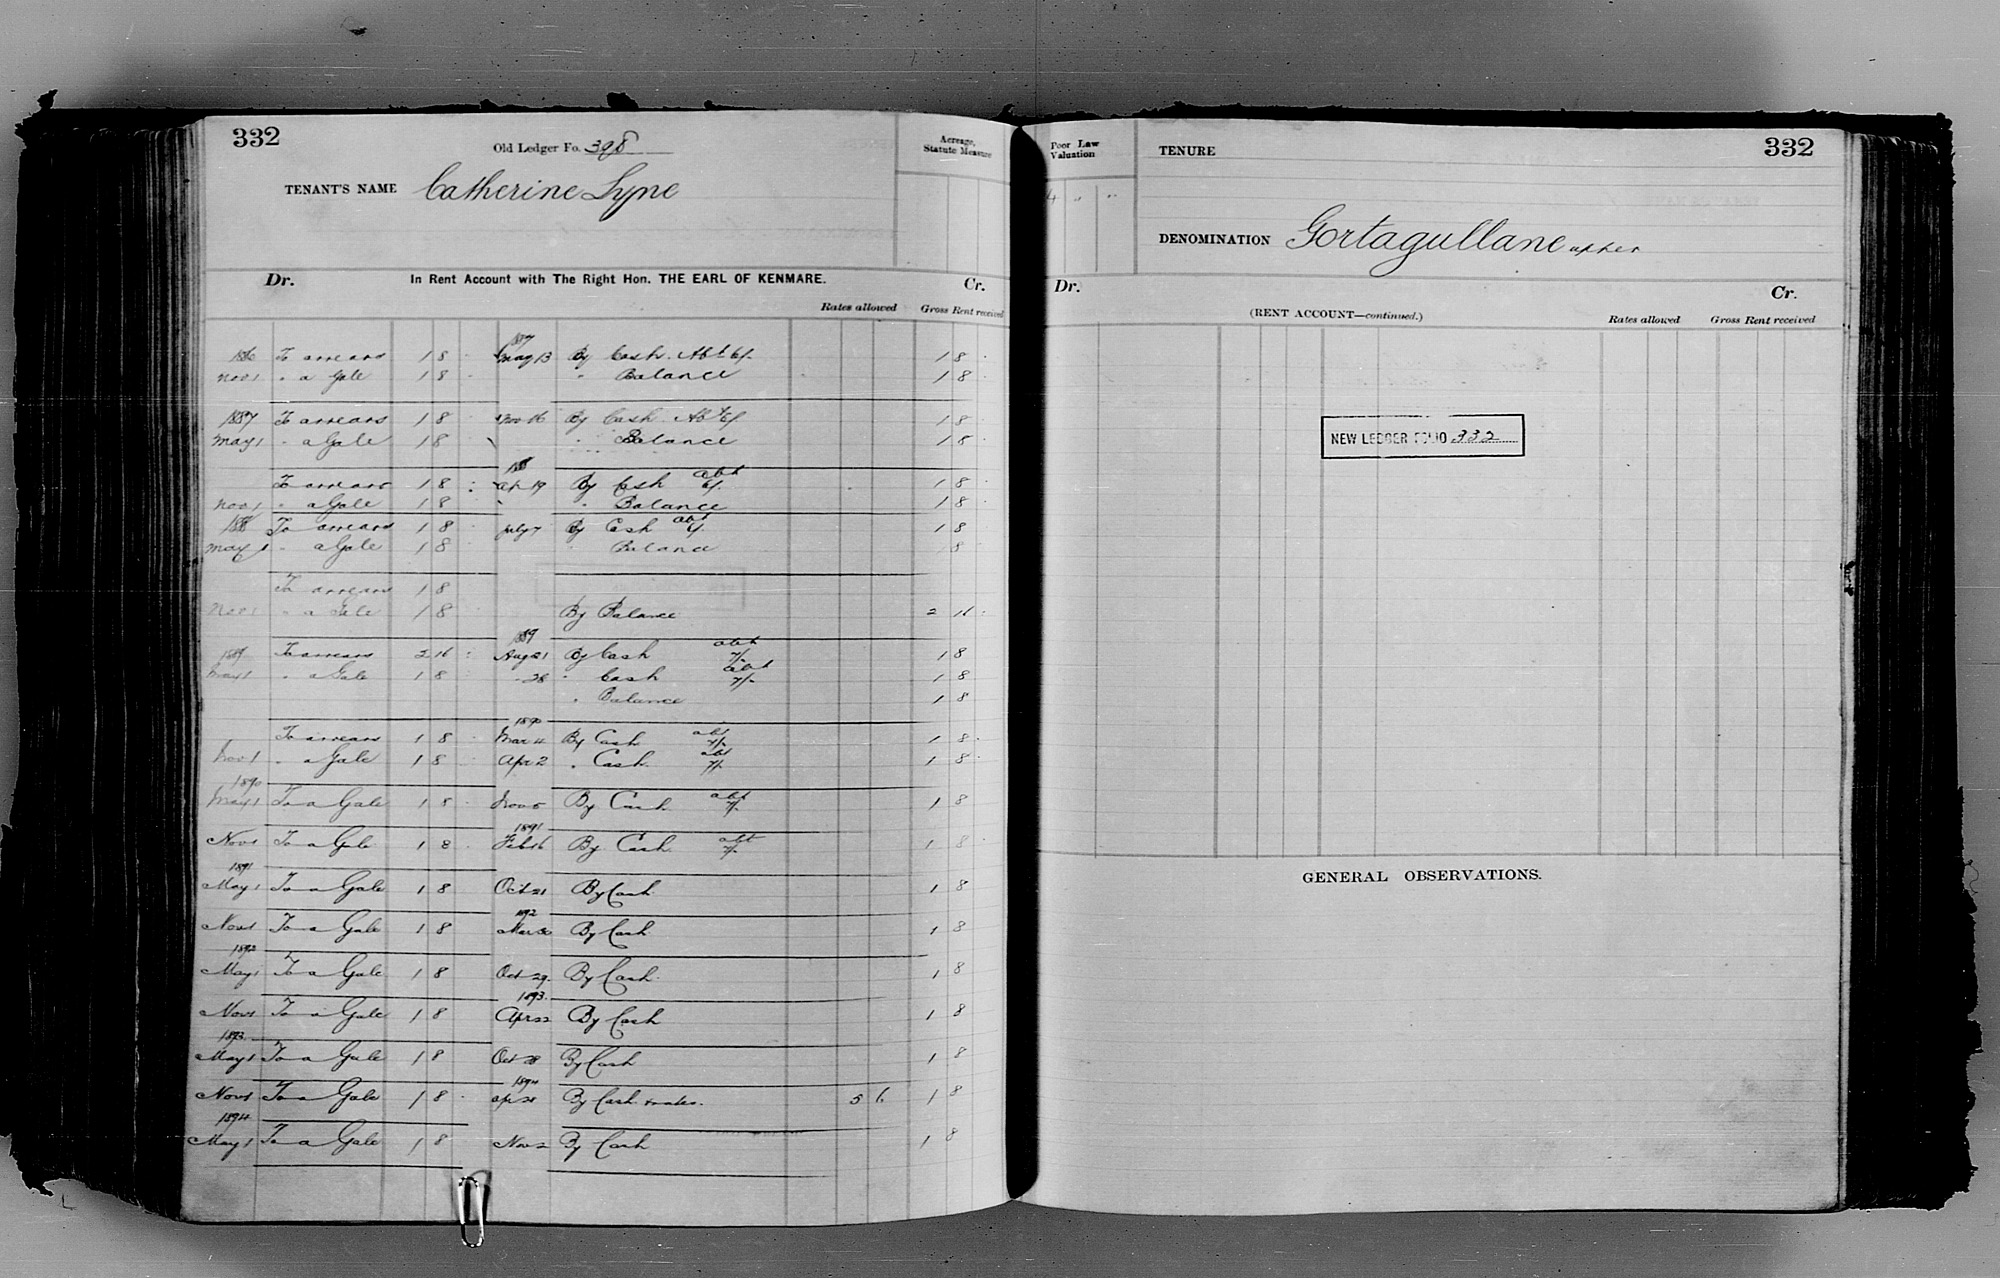 332
Old Ledger Fo. 398
TENANT'S NAME Catherine Lyne
Acreage, Statute Measure
Dr. In Rent Account with The Right Hon. THE EARL OF KENMARE. Cr.
Rates allowed Gross Rent received
1887
1886 To arrears 1 8 - May 13 By Cash Abt 6/- 1 8 -
Nov 1 " a Gale 1 8 - " Balance 1 8 -
1887 To arrears 1 8 - Nov 16 By Cash Abt 6/ 1 8
May 1 " a Gale 1 8 " Balance 1 8
1888 abt
To arrears 1 8 Ap 19 By Cash 6/- 1 8
Nov 1 " a Gale 1 8 " Balance 1 8
1888 To arrears 1 8 July 7 By Cash abt 1 8
May 1 " a Gale 1 8 " Balance 8
To arrears 1 8
Nov 1 " a Gale 1 8 By Balance 2 16
1889 abt
1889 To arrears 2 16 Aug 21 By Cash 7/- 1 8
May 1 " a Gale 1 8 - 28 " Cash abt 7/- 1 8
" Balance 1 8
1890
To arrears 1 8 Mar 4 By Cash abt 7/- 1 8
Nov 1 " a Gale 1 8 Apr 2 " Cash abt 7/- 1 8
1890
May 1 To a Gale 1 8 Nov 5 By Cash abt 7/- 1 8
1891
Nov 1 To a Gale 1 8 Feb 16 By Cash abt 7/- 1 8
1891
May 1 To a Gale 1 8 Oct 21 By Cash 1 8
1892
Nov 1 To a Gale 1 8 Mar 30 By Cash 1 8
1892
May 1 To a Gale 1 8 Oct 29 By Cash 1 8
1893
Nov 1 To a Gale 1 8 Apr 22 By Cash 1 8
1893
May 1 To a Gale 1 8 Oct 28 By Cash 1 8
1894
Nov 1 To a Gale 1 8 Ap 28 By Cash & rates. 5 6 1 8
1894
May 1 To a Gale 1 8 Nov 2 By Cash 1 8
Poor Law Valuation
4 " "
TENURE
332
DENOMINATION Gortagullane upper
Dr. Cr.
(RENT ACCOUNT—continued.) Rates allowed Gross Rent received
NEW LEDGER FOLIO 332
GENERAL OBSERVATIONS.